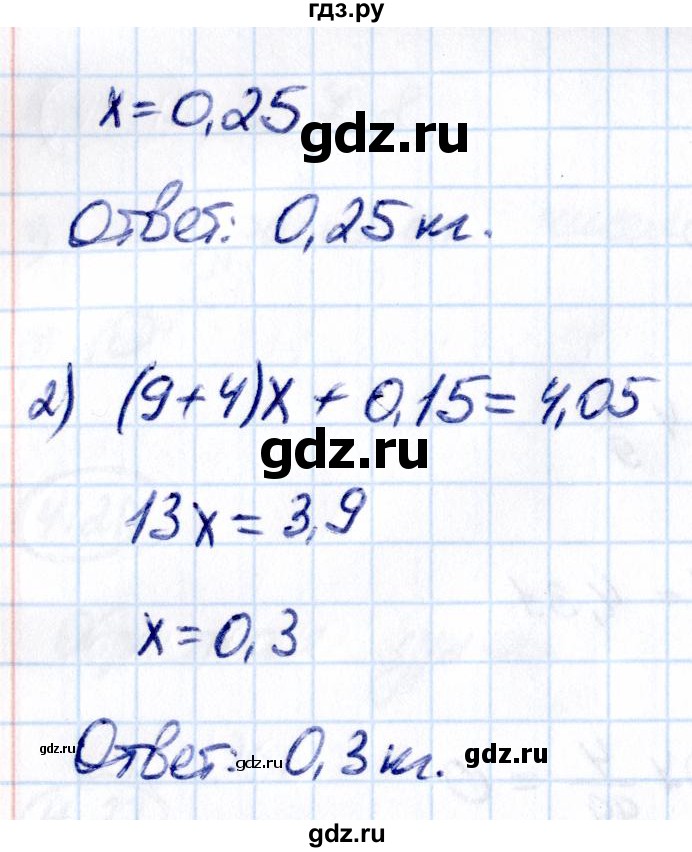 гдз.ру
x = 0,25
gdz.ru
Ответ: 0,25 кг.
2) (9+4)x + 0,15 = 4,05
gdz.ru
13x = 3,9
x = 0,3
gdz.ru gdz.ru gdz.ru
Ответ: 0,3 кг.
gdz.ru